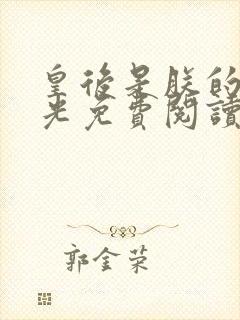 皇後是朕的
光免費閱讀
郭金荣